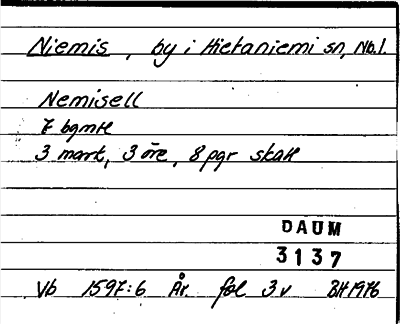 Niemis, by i Hietaniemi sn, Nb.l.
Nemisell
7 bgmtl
3 mark, 3 öre, 8 pgr skatt
DAUM
3137
Vb 1597:6 År. fol 3v BH 1976